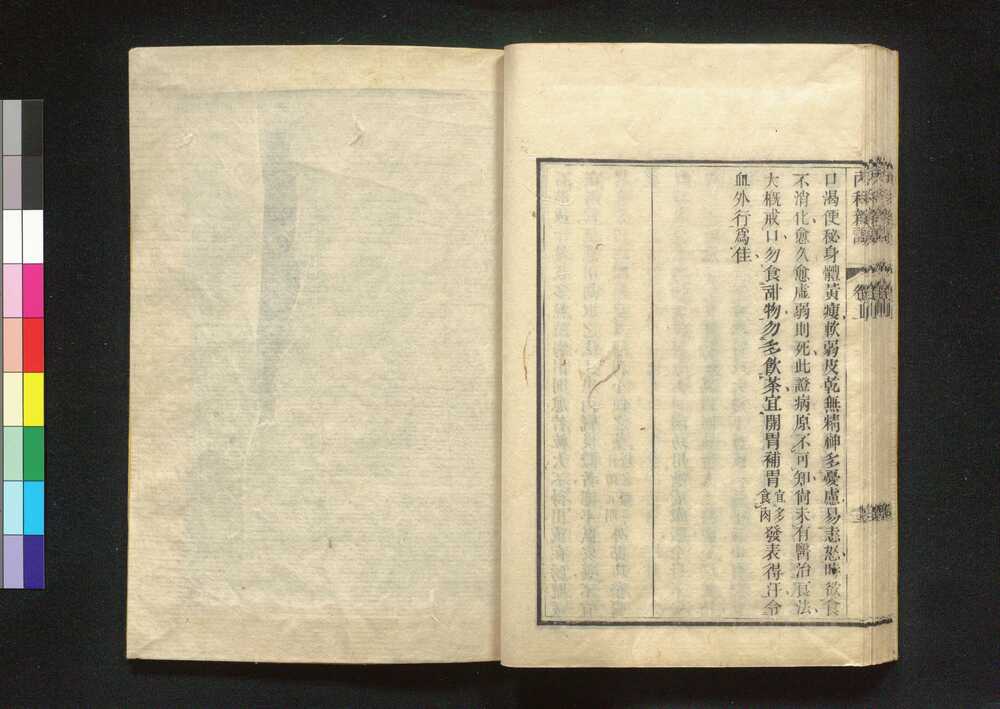 口渴便秘身體黃瘦軟弱皮乾無精神多憂慮易恚怒時欲食
不消化愈久愈虛弱則死此證病原不可知尙未有醫治良法
大槪戒口勿食甜物勿多飮茶宜開胃補胃宜多食肉發表得汗令
血外行爲佳